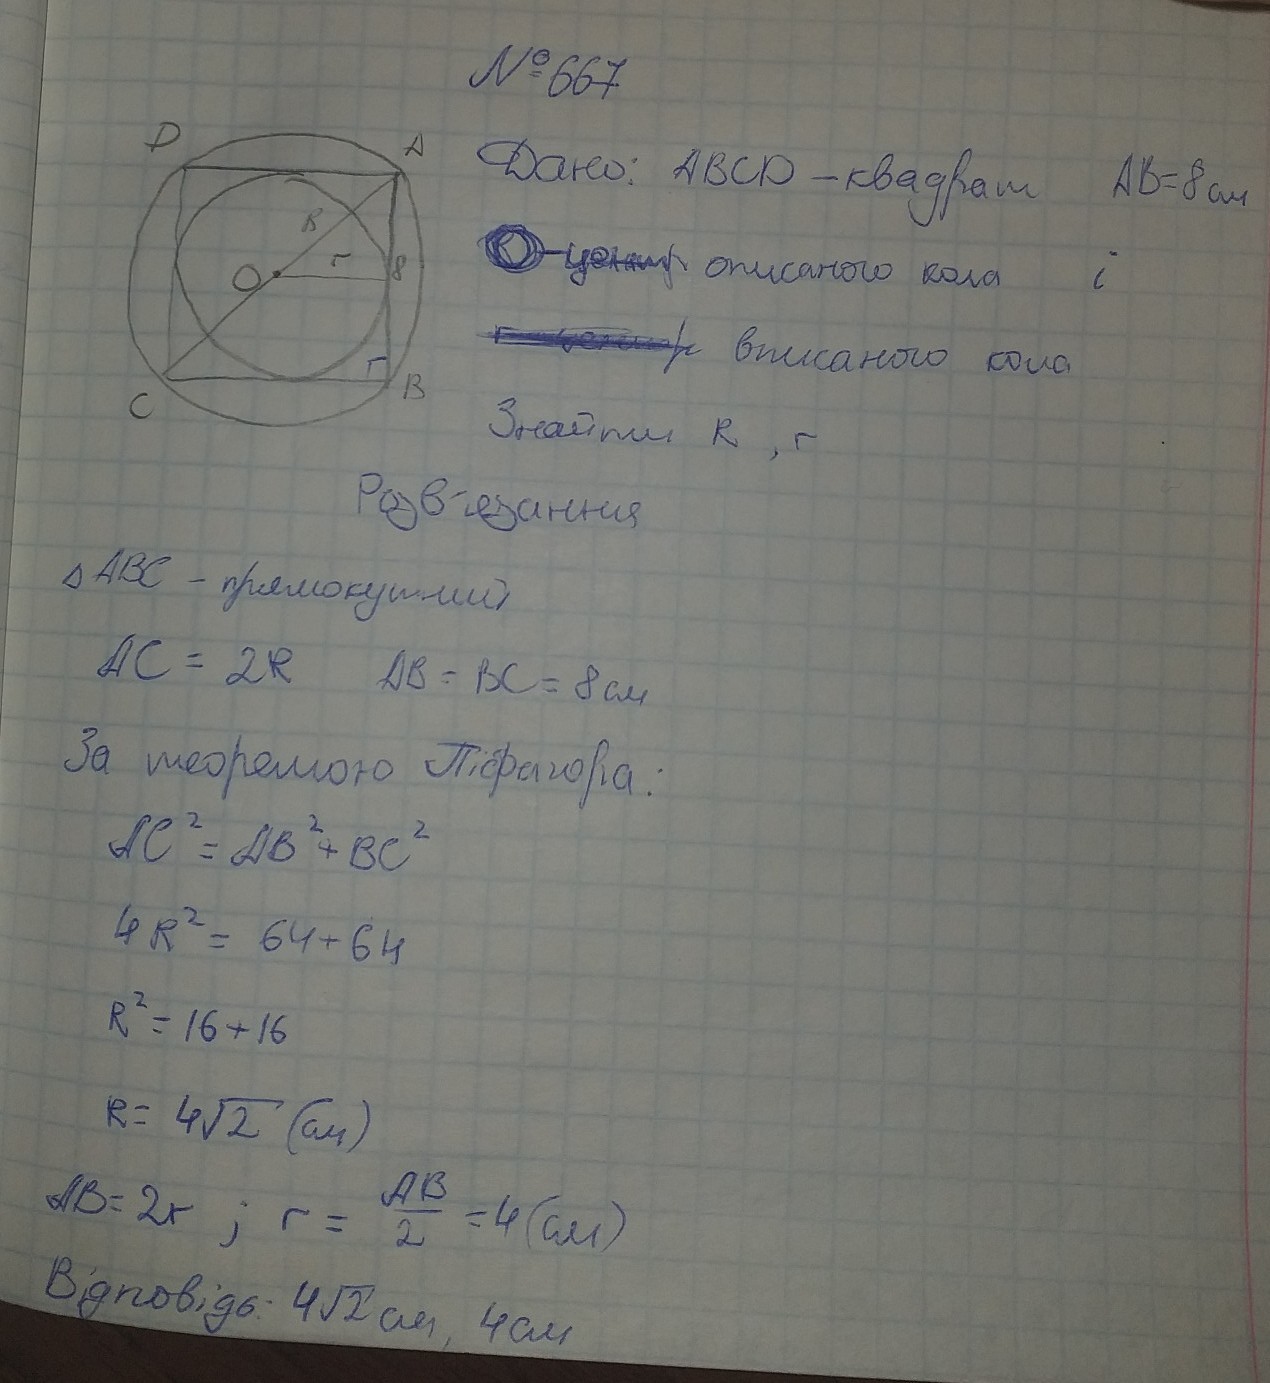 №667
D A
Дано: ABCD – квадрат AB=8см
R
O r 8
O – центр описаного кола і
вписаного кола
C B
Знайти R, r
Розв'язання
△ABC – прямокутний
AC = 2R AB = BC = 8см
За теоремою Піфагора:
AC² = AB² + BC²
4R² = 64+64
R² = 16+16
R = 4√2 (см)
AB = 2r ; r = AB/2 = 4 (см)
Відповідь: 4√2 см, 4см